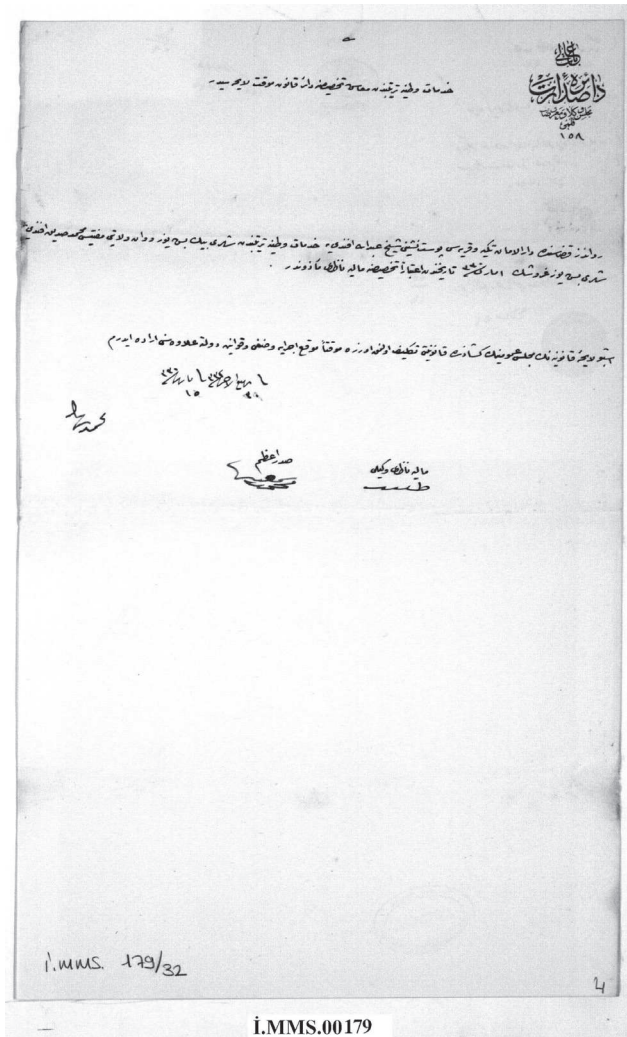 باب عالی
دائرهٔ صدارت
١٥٨
خدمات وطنیه ترتیبندن معاش تخصیصنه دائر قانون موقت لایحه سیدر
رواندز قضاسنده دارالامان تکیه و قریه‌سی پوست‌نشینی شیخ عبدالله افندی‌یه خدمات وطنیه ترتیبندن شهری بیك بش یوز و وان ولایتی مفتیسی محمد صدیق افندی‌یه
شهری بش یوز غروشك تاریخندن اعتباراً تخصیصنه مالیه ناظری مأذوندر
اشبو لایحهٔ قانونیه‌نك مجلس عمومینك کشادنده قانونیتی تکلیف اولنمق اوزره موقتاً موقع اجرایه وضعنی و قوانین دولته علاوه‌سنی اراده ایدرم
صدر اعظم
مالیه ناظری وکیلی
طلعت
İ.MMS. 179/32
4
İ.MMS.00179